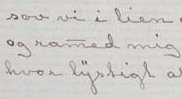 sov vi i lien
og ramed mig
hvor lystigt a